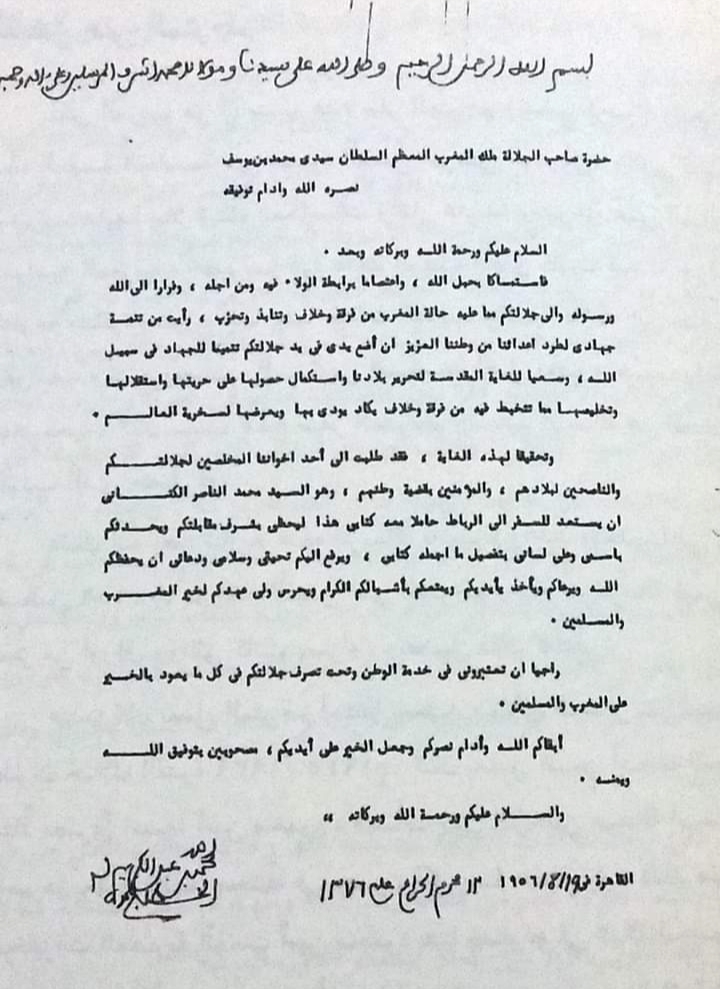 بسم الله الرحمن الرحيم وصلى الله على سيدنا ومولانا محمد اشرف المرسلين وعلى اله وصحبه
حضرة صاحب الجلالة ملك المغرب المعظم السلطان سيدى محمد بن يوسف
نصره الله وادام توفيقه
السلام عليكم ورحمة اللـه وبركاته وبعد .
فاستمساكا بحبل الله ، واعتصاما برابطة الولاء فيه ومن اجله ، وفرارا الى الله
ورسوله والى جلالتكم مما عليه حالة المغرب من فرقة وخلاف وتنابذ وتحزب ، رأيت من تتمة
جهادى لطرد اعدائنا من وطننا العزيز ان أضع يدى فى يد جلالتكم تتميما للجهاد فى سبيل
اللـه ، وسعيا للغاية المقدسة لتحرير بلادنا واستكمال حصولها على حريتها واستقلالها
وتخليصها مما تتخبط فيه من فرقة وخلاف يكاد يودى بها ويعرضها لسخرية العالـــم .
وتحقيقا لهذه الغاية ، فقد طلبت الى أحد اخواننا المخلصين لجلالتـــكم
والناصحين لبلادهم ، والمؤمنين بقضية وطنهم ، وهو السيد محمد الناصر الكتـــانى
ان يستعد للسفر الى الرباط حاملا معه كتابى هذا ليحظى بشرف مقابلتكم ويحدثكم
باسمى وعلى لسانى بتفصيل ما اجمله كتابى ، ويرفع اليكم تحيتى وسلامى ودعائى ان يحفظكم
اللـه ويرعاكم ويأخذ بأيديكم ويمتعكم بأشبالكم الكرام ويحرس ولى عهدكم لخير المغـــرب
والمسلمين .
راجيا ان تعتبرونى فى خدمة الوطن وتحت تصرف جلالتكم فى كل ما يعود بالخـــير
على المغرب والمسلمين .
أبقاكم اللـه وأدام نصركم وجعل الخير على أيديكم ، مصحوبين بتوفيق اللـــه
ويمنـه .
والســـلام عليكم ورحمة الله وبركاته ،،
القاهرة فى ١٩٥٦/٨/١٩ ١٣ محرم الحرام عام ١٣٧٦
محمد بن عبد الكريم
الخطابي